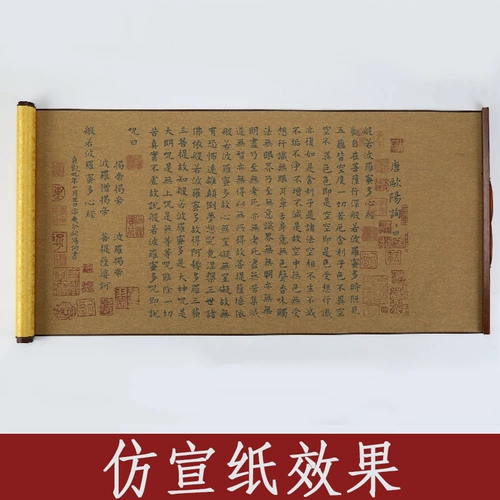 唐歐陽詢
般若波羅蜜多心經
觀自在菩薩行深般若波羅蜜多時照見
五蘊皆空度一切苦厄舍利子色不異空
空不異色色即是空空即是色受想行識
亦復如是舍利子是諸法空相不生不滅
不垢不淨不增不減是故空中無色無受
想行識無眼耳鼻舌身意無色聲香味觸
法無眼界乃至無意識界無無明亦無無
明盡乃至無老死亦無老死盡無苦集滅
道無智亦無得以無所得故菩提薩埵依
般若波羅蜜多故心無罣礙無罣礙故無
有恐怖遠離顛倒夢想究竟涅槃三世諸
佛依般若波羅蜜多故得阿耨多羅三藐
三菩提故知般若波羅蜜多是大神呪是
大明呪是無上呪是無等等呪能除一切
苦真實不虛故說般若波羅蜜多呪即說
呪曰
揭帝揭帝 波羅揭帝
波羅僧揭帝 菩提薩婆訶
般若波羅蜜多心經
貞觀九年十月旦日率更令歐陽詢書
仿宣纸效果